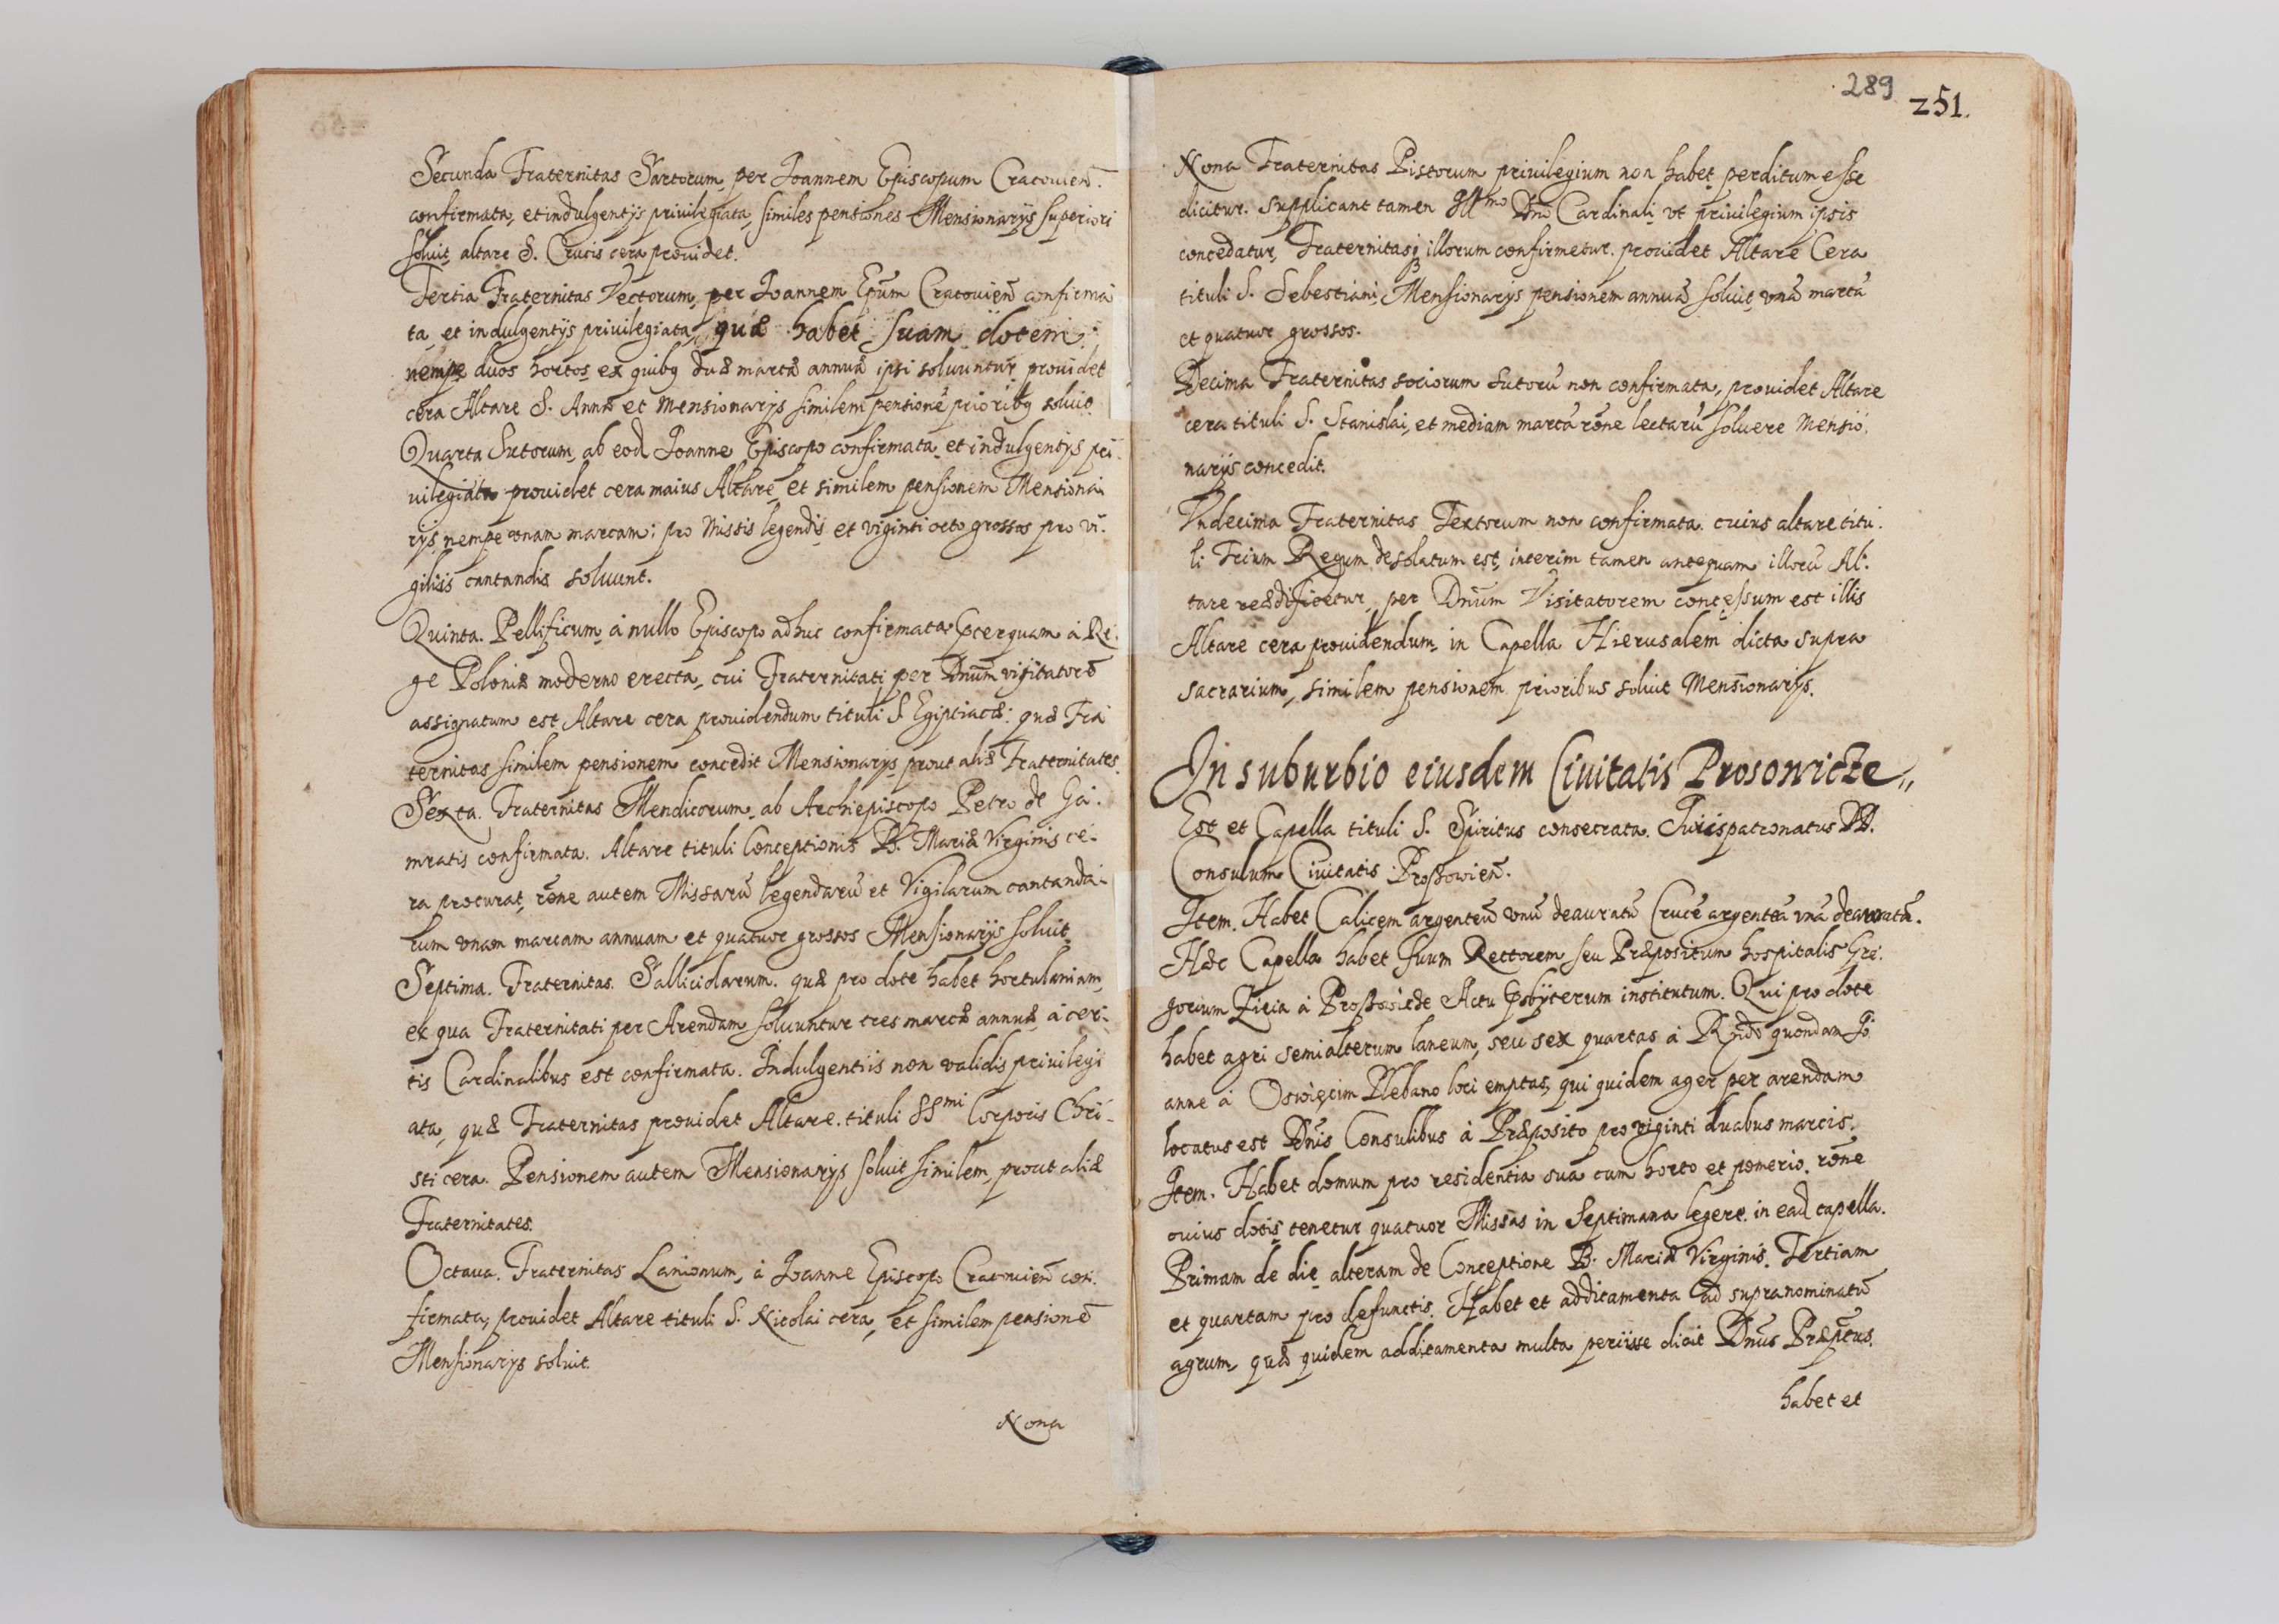 Secunda Fraternitas Sartorum, per Joannem Episcopum Cracouien̄.
confirmata, et indulgentÿs priuilegiata, similes pensiones Mensionarÿs superiori
soluit, altare S. Crucis cera prouidet.
Tertia Fraternitas Vectorum, per Joannem Ep̄um Cracouien̄ confirma
ta, et indulgentÿs priuilegiata, quæ habet suam dotem:
nempe duos hortos, ex quibꝯ duæ marcæ annuæ ipsi soluuntur, prouidet
cera Altare S. Annæ et mensionarÿs similem pensionē prioribꝯ soluit.
Quarta Sutorum, ab eod Joanne Episcopo confirmata, et indulgentÿs pri-
uilegiata prouidet cera maius Altare, et similem pensionem Mensiona-
rÿs, nempe vnam marcam: pro Missis legendis, et viginti octo grossos pro vi-
gilijs cantandis soluunt.
Quinta. Pellificum, à nullo Episcopo adhuc confirmata, p̄terquam à Re-
ge Poloniæ moderno erecta, cui Fraternitati per Dnūm visitatorē
assignatum est Altare cera prouidendum tituli S. Egiptiacæ: quæ Fra
ternitas similem pensionem concedit Mensionarÿs, prout aliæ Fraternitates.
Sexta. Fraternitas Mendicorum, ab Archiepiscopo Petro de Ga-
mratis confirmata. Altare tituli Conceptionis B. Mariæ Virginis ce-
ra procurat, rōne autem Missarū legendarū et Vigilarum cantanda-
rum vnam marcam annuam et quatuor grossos Mensionarÿs soluit.
Septima. Fraternitas. Sallicidarum. quæ pro dote habet hortulaniam
ex qua Fraternitati per Arendam soluuntur tres marcæ annuæ, à cer-
tis Cardinalibus est confirmata. Indulgentiis non validis priuilegi
ata, quæ Fraternitas prouidet Altare. tituli SSmi Corporis Chri-
sti cera. Pensionem autem Mensionarÿs soluit similem, prout aliæ
Fraternitates.
Octaua. Fraternitas Lanionum, à Joanne Episcopo Cracouien̄ con-
firmata, prouidet Altare tituli S. Nicolai cera, et similem pensionē
Mensionarÿs soluit.
Nona
289
251.
Nona Fraternitas Pistorum priuilegium non habet, perditum esse
dicitur. supplicant tamen Illmo Dno Cardinali, vt priuilegium ipsis
concedatur, Fraternitasq illorum confirmetur. prouidet Altare Cera
tituli S. Sebestiani, Mensionarÿs pensionem annuā soluit, vnā marcā
et quatuor grossos.
Decima Fraternitas sociorum Sutorū non confirmata, prouidet Altare
cera tituli S. Stanislai, et mediam marcā rōne lectarū soluere Mensio-
narÿs concedit.
Vndecima Fraternitas Textorum non confirmata. cuius altare titu-
li Trium Regum desolatum est, interim tamen antequam illorū Al-
tare reædificetur, per Dnūm Visitatorem concessum est illis
Altare cera prouidendum, in Capella Hierusalem dicta supra
sacrarium, similem pensionem prioribus soluit Mensionarÿs.
In suburbio eiusdem Ciuitatis Prosowicze„
Est et Capella tituli S. Spiritus consecrata. Jurispatronatus DD.
Consulum Ciuitatis Proßowien̄.
Item. Habet Calicem argenteū vnū deauratū Crucē argenteā vnā deauratā.
Hæc Capella habet suum Rectorem seu Præpositum hospitalis Gre-
gorium Zieia à Proßowicde Actu p̄sbÿterum institutum. Qui pro dote
habet agri semialterum laneum, seu sex quartas à Rn̄do quondam Jo
anne à Oswięcim Plebano loci emptas, qui quidem ager per arendam
locatus est Dn̄is Consulibus à Præposito pro viginti duabus marcis.
Item. Habet domum pro residentia sua cum horto et pomerio. rōne
cuius dotis tenetur quatuor Missas in Septimana legere. in ead capella.
Primam de die, alteram de Conceptione B. Mariæ Virginis. Tertiam
et quartam pro defunctis. Habet et additamenta ad supranominatū
agrum, quæ quidem additamenta multa perijsse dicit Dn̄us Præptūs.
habet et